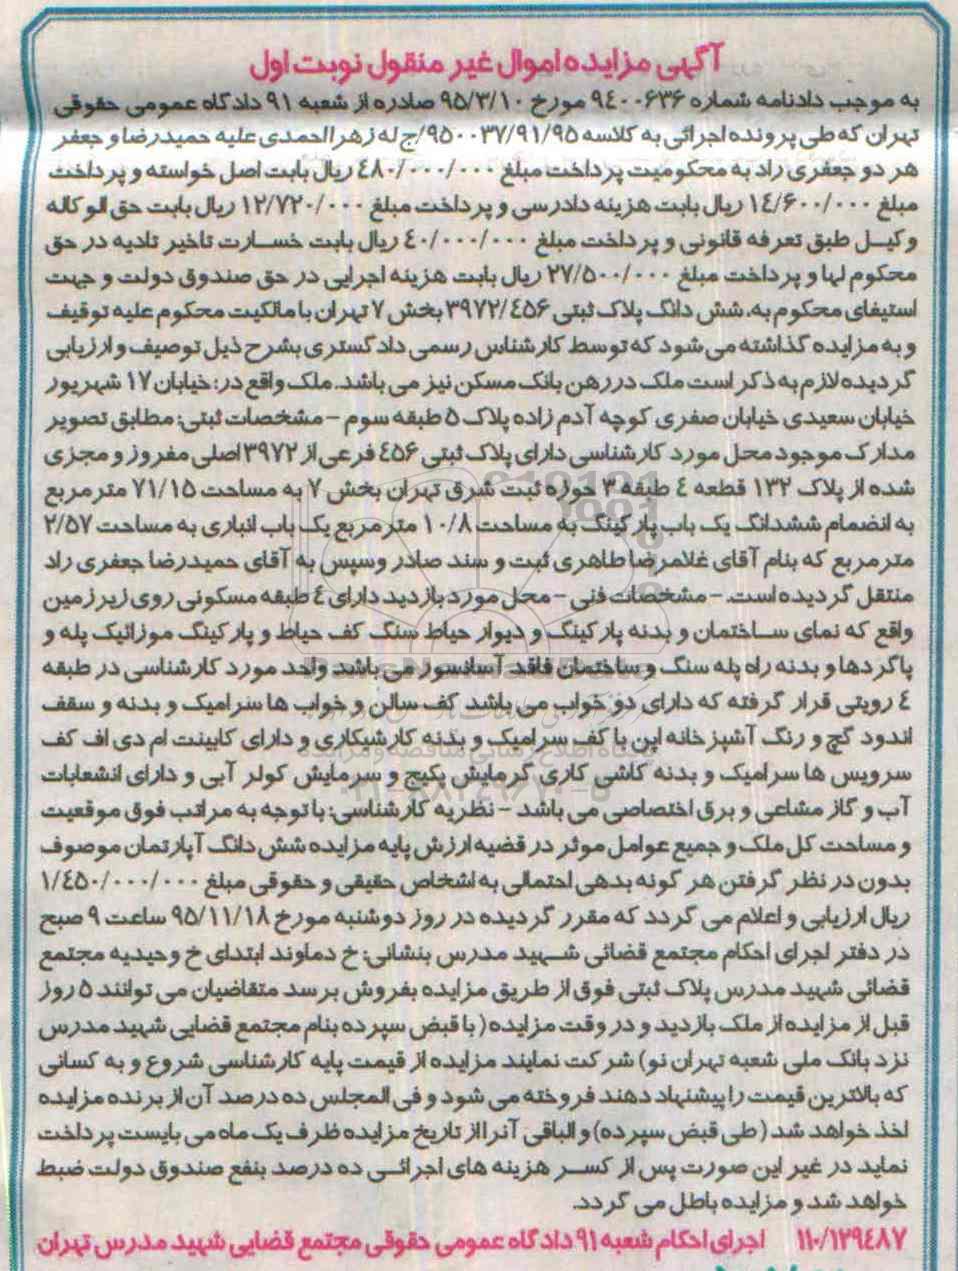 آگهی مزایده اموال غیر منقول نوبت اول
به موجب دادنامه شماره ۹٤۰۰۶۳۶ مورخ ۹۵/۳/۱۰ صادره از شعبه ۹۱ دادگاه عمومی حقوقی
تهران که طی پرونده اجرائی به کلاسه ۹۵۰۰۳۷/۹۱/۹۵/ج له زهرا احمدی علیه حمیدرضا و جعفر
هر دو جعفری راد به محکومیت پرداخت مبلغ ٤۸۰/۰۰۰/۰۰۰ ریال بابت اصل خواسته و پرداخت
مبلغ ۱٤/۶۰۰/۰۰۰ ریال بابت هزینه دادرسی و پرداخت مبلغ ۱۲/۷۲۰/۰۰۰ ریال بابت حق الوکاله
وکیل طبق تعرفه قانونی و پرداخت مبلغ ٤۰/۰۰۰/۰۰۰ ریال بابت خسارت تاخیر تادیه در حق
محکوم لها و پرداخت مبلغ ۲۷/۵۰۰/۰۰۰ ریال بابت هزینه اجرایی در حق صندوق دولت و جهت
استیفای محکوم به، شش دانگ پلاک ثبتی ۳۹۷۲/٤۵۶ بخش ۷ تهران با مالکیت محکوم علیه توقیف
و به مزایده گذاشته می شود که توسط کارشناس رسمی دادگستری بشرح ذیل توصیف و ارزیابی
گردیده لازم به ذکر است ملک در رهن بانک مسکن نیز می باشد. ملک واقع در: خیابان ۱۷ شهریور
خیابان سعیدی خیابان صفری کوچه آدم زاده پلاک ۵ طبقه سوم - مشخصات ثبتی: مطابق تصویر
مدارک موجود محل مورد کارشناسی دارای پلاک ثبتی ٤۵۶ فرعی از ۳۹۷۲ اصلی مفروز و مجزی
شده از پلاک ۱۳۲ قطعه ٤ طبقه ۳ حوزه ثبت شرق تهران بخش ۷ به مساحت ۷۱/۱۵ متر مربع
به انضمام ششدانگ یک باب پارکینگ به مساحت ۱۰/۸ متر مربع یک باب انباری به مساحت ۲/۵۷
متر مربع که بنام آقای غلامرضا طاهری ثبت و سند صادر وسپس به آقای حمیدرضا جعفری راد
منتقل گردیده است. - مشخصات فنی - محل مورد بازدید دارای ٤ طبقه مسکونی روی زیرزمین
واقع که نمای ساختمان و بدنه پارکینگ و دیوار حیاط سنگ کف حیاط و پارکینگ موزائیک پله و
پاگردها و بدنه راه پله سنگ و ساختمان فاقد آسانسور می باشد واحد مورد کارشناسی در طبقه
٤ رویتی قرار گرفته که دارای دو خواب می باشد کف سالن و خواب ها سرامیک و بدنه و سقف
اندود گچ و رنگ آشپزخانه اپن با کف سرامیک و بدنه کاشیکاری و دارای کابینت ام دی اف کف
سرویس ها سرامیک و بدنه کاشی کاری گرمایش پکیج و سرمایش کولر آبی و دارای انشعابات
آب و گاز مشاعی و برق اختصاصی می باشد - نظریه کارشناسی: با توجه به مراتب فوق موقعیت
و مساحت کل ملک و جمیع عوامل موثر در قضیه ارزش پایه مزایده شش دانگ آپارتمان موصوف
بدون در نظر گرفتن هر گونه بدهی احتمالی به اشخاص حقیقی و حقوقی مبلغ ۱/٤۵۰/۰۰۰/۰۰۰
ریال ارزیابی و اعلام می گردد که مقرر گردیده در روز دوشنبه مورخ ۹۵/۱۱/۱۸ ساعت ۹ صبح
در دفتر اجرای احکام مجتمع قضائی شهید مدرس بنشانی: خ دماوند ابتدای خ وحیدیه مجتمع
قضائی شهید مدرس پلاک ثبتی فوق از طریق مزایده بفروش برسد متقاضیان می توانند ۵ روز
قبل از مزایده از ملک بازدید و در وقت مزایده ( با قبض سپرده بنام مجتمع قضایی شهید مدرس
نزد بانک ملی شعبه تهران نو) شرکت نمایند مزایده از قیمت پایه کارشناسی شروع و به کسانی
که بالاترین قیمت را پیشنهاد دهند فروخته می شود و فی المجلس ده درصد آن از برنده مزایده
اخذ خواهد شد ( طی قبض سپرده) و الباقی آنرا از تاریخ مزایده ظرف یک ماه می بایست پرداخت
نماید در غیر این صورت پس از کسر هزینه های اجرائی ده درصد بنفع صندوق دولت ضبط
خواهد شد و مزایده باطل می گردد.
۱۱۰/۱۲۹٤۸۷ اجرای احکام شعبه ۹۱ دادگاه عمومی حقوقی مجتمع قضایی شهید مدرس تهران